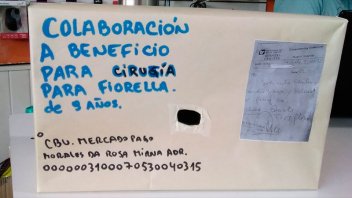 COLABORACIÓN
A BENEFICIO
PARA CIRUGÍA
PARA FIORELLA.
de 9 AÑOS.
CBU. MERCADO PAGO
MORALES DA ROSA MIRNA ADR.
0000003100070530040315